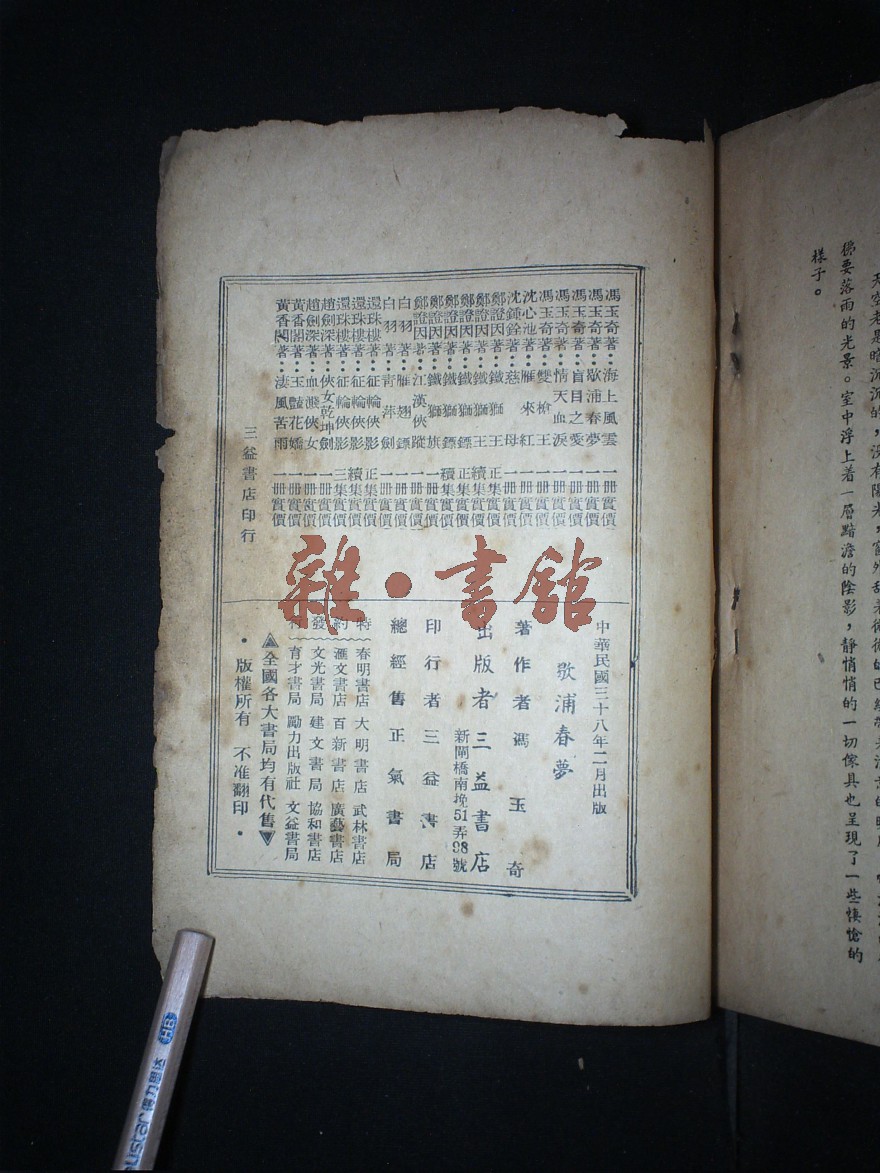 天空老是暗沉沉的，沒有陽光，窗外
稀要落雨的光景。室中浮上着一層黯澹的陰影，靜悄悄的一切傢具也呈現了一些悽愴的
樣子。
馮玉奇著：海上風雲 一冊實價
馮玉奇著：歇浦春夢 一冊實價
馮玉奇著：盲目之愛 一冊實價
馮玉奇著：情天血淚 一冊實價
馮玉奇著：雙槍王 一冊實價
沈心池著：雁來紅 一冊實價
沈鍾銓著：慈母 一冊實價
鄭證因著：鐵獅王 正集實價
鄭證因著：鐵獅王 續集實價
鄭證因著：鐵獅鏢 正集實價
鄭證因著：鐵獅鏢 續集實價
鄭證因著：鐵獅旗 一冊實價
鄭證因著：江漢俠蹤 一冊實價
白羽著：雁翅鏢 一冊實價
白羽著：青萍劍 一冊實價
還珠樓著：征輪俠影 正集實價
還珠樓著：征輪俠影 續集實價
還珠樓著：征輪俠影 三集實價
趙劍深著：俠女乾坤劍 一冊實價
趙劍深著：血濺俠女 一冊實價
黃香閣著：玉豔花嬌 一冊實價
黃香閣著：淒風苦雨 一冊實價
三益書店印行
中華民國三十八年二月出版
歇浦春夢
著作者 馮玉奇
出版者 三益書店
新閘橋南堍51弄98號
印行者 三益書店
總經售 正氣書局
特約發行
春明書店 大明書店 武林書店
滙文書店 百新書店 廣藝書店
文光書局 建文書局 協和書店
育才書局 勵力出版社 文益書局
▲全國各大書局均有代售▼
• 版權所有 不准翻印 •
雜•書館
HB